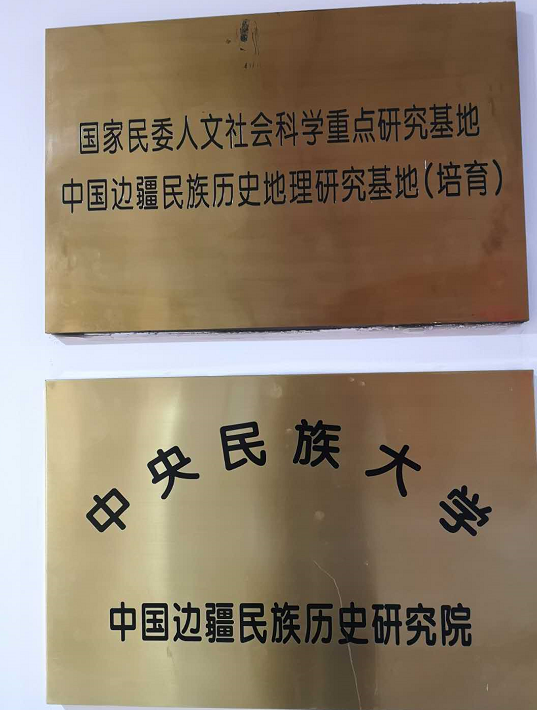 国家民委人文社会科学重点研究基地
中国边疆民族历史地理研究基地(培育)
中央民族大学
中国边疆民族历史研究院